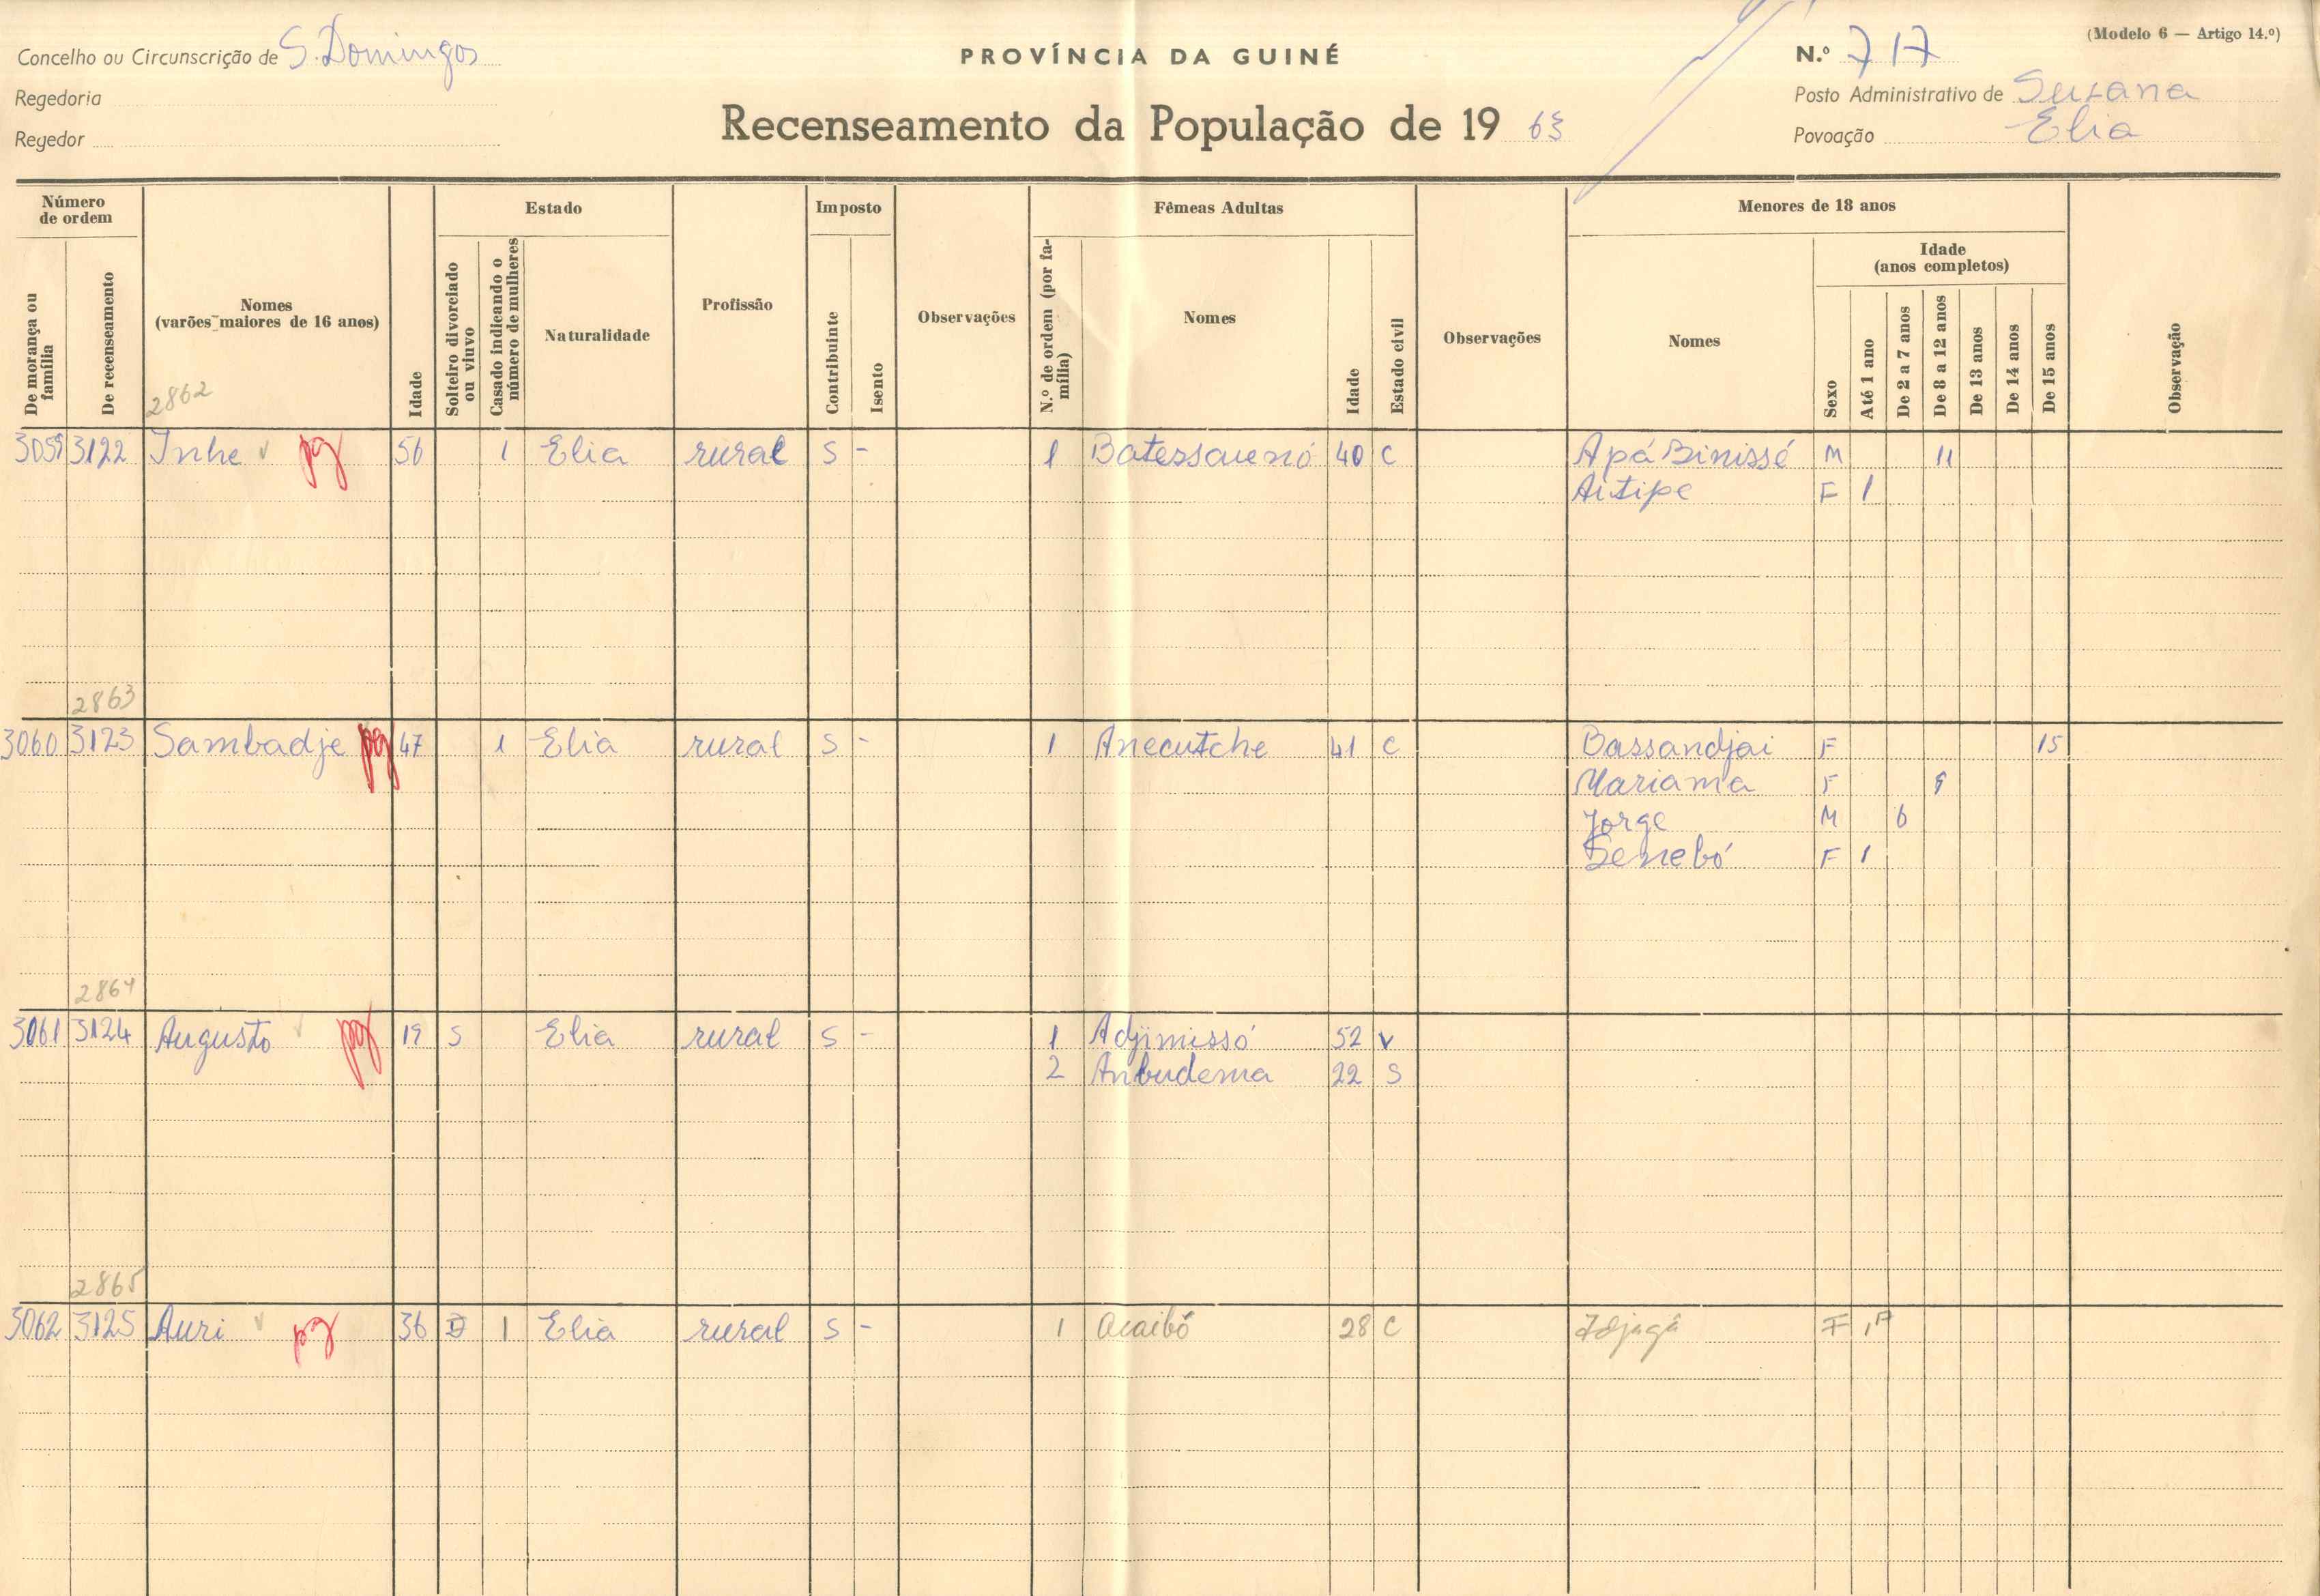 Concelho ou Circunscrição de S. Domingos
PROVÍNCIA DA GUINÉ
N.º 717
(Modelo 6 — Artigo 14.º)
Regedoria
Posto Administrativo de Suzana
Regedor
Recenseamento da População de 19 63
Povoação Elia
Número de ordem
De morança ou família
De recenseamento
Nomes (varões maiores de 16 anos)
Idade
Estado
Solteiro divorciado ou viuvo
Casado indicando o número de mulheres
Naturalidade
Profissão
Imposto
Contribuinte
Isento
Observações
Fêmeas Adultas
N.º de ordem (por família)
Nomes
Idade
Estado civil
Observações
Menores de 18 anos
Nomes
Sexo
Idade (anos completos)
Até 1 ano
De 2 a 7 anos
De 8 a 12 anos
De 13 anos
De 14 anos
De 15 anos
Observação
2862
3059 3122 Inhe pg 56 1 Elia rural S - 1 40 C Apá Binissé M 11
Aitipe F 1
2863
3060 3123 Sambadje pg 47 1 Elia rural S - 1 Anecutche 41 C Bassandjai F 15
Mariama F 9
Jorge M 6
F 1
2864
3061 3124 Augusto pg 19 S Elia rural S - 1 Adjimissó 52 V
2 Anbudema 22 S
2865
3062 3125 Auri pg 36 1 Elia rural S - 1 Acaibó 28 C F